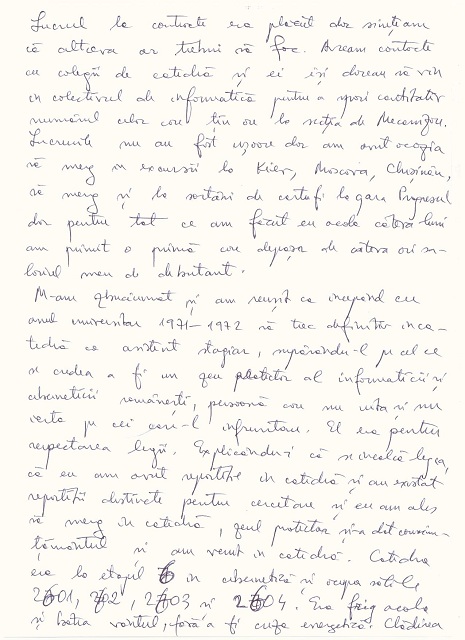 Lucrul la contracte era plăcut dar simțeam
că altceva ar trebui să fac. Aveam contacte
cu colegii de catedră și ei își doreau să vin
în colectivul de informatică pentru a spori cantitativ
numărul celor care țin ore la secția de Mecanizare.
Lucrurile nu au fost ușoare dar am avut ocazia
să merg în excursii la Kiev, Moscova, Chișinău,
să merg și la sortări de cartofi la gara Progresul
dar pentru tot ce am făcut eu acolo câteva luni
am primit o primă care depășea de câteva ori sa-
lariul meu de debutant.
M-am zbuciumat și am reușit ca începând cu
anul universitar 1971-1972 să trec definitiv în ca-
tedră ca asistent stagiar, supărându-l pe cel ce
se credea a fi un zeu protector al informaticii și
ciberneticii românești, persoană care nu uita și nu
ierta pe cei care-l înfruntau. El era pentru
respectarea legii. Explicându-i că se încalcă legea,
că eu am avut repartiție în catedră și au existat
repartiții distincte pentru cercetare și eu am ales
să merg în catedră, zeul protector și-a dat consim-
țământul și am venit în catedră. Catedra
era la etajul 6 în cibernetică și ocupa sălile
2601, 2602, 2603 și 2604. Era frig acolo
și bătea vântul, fără a fi criză energetică. Clădirea